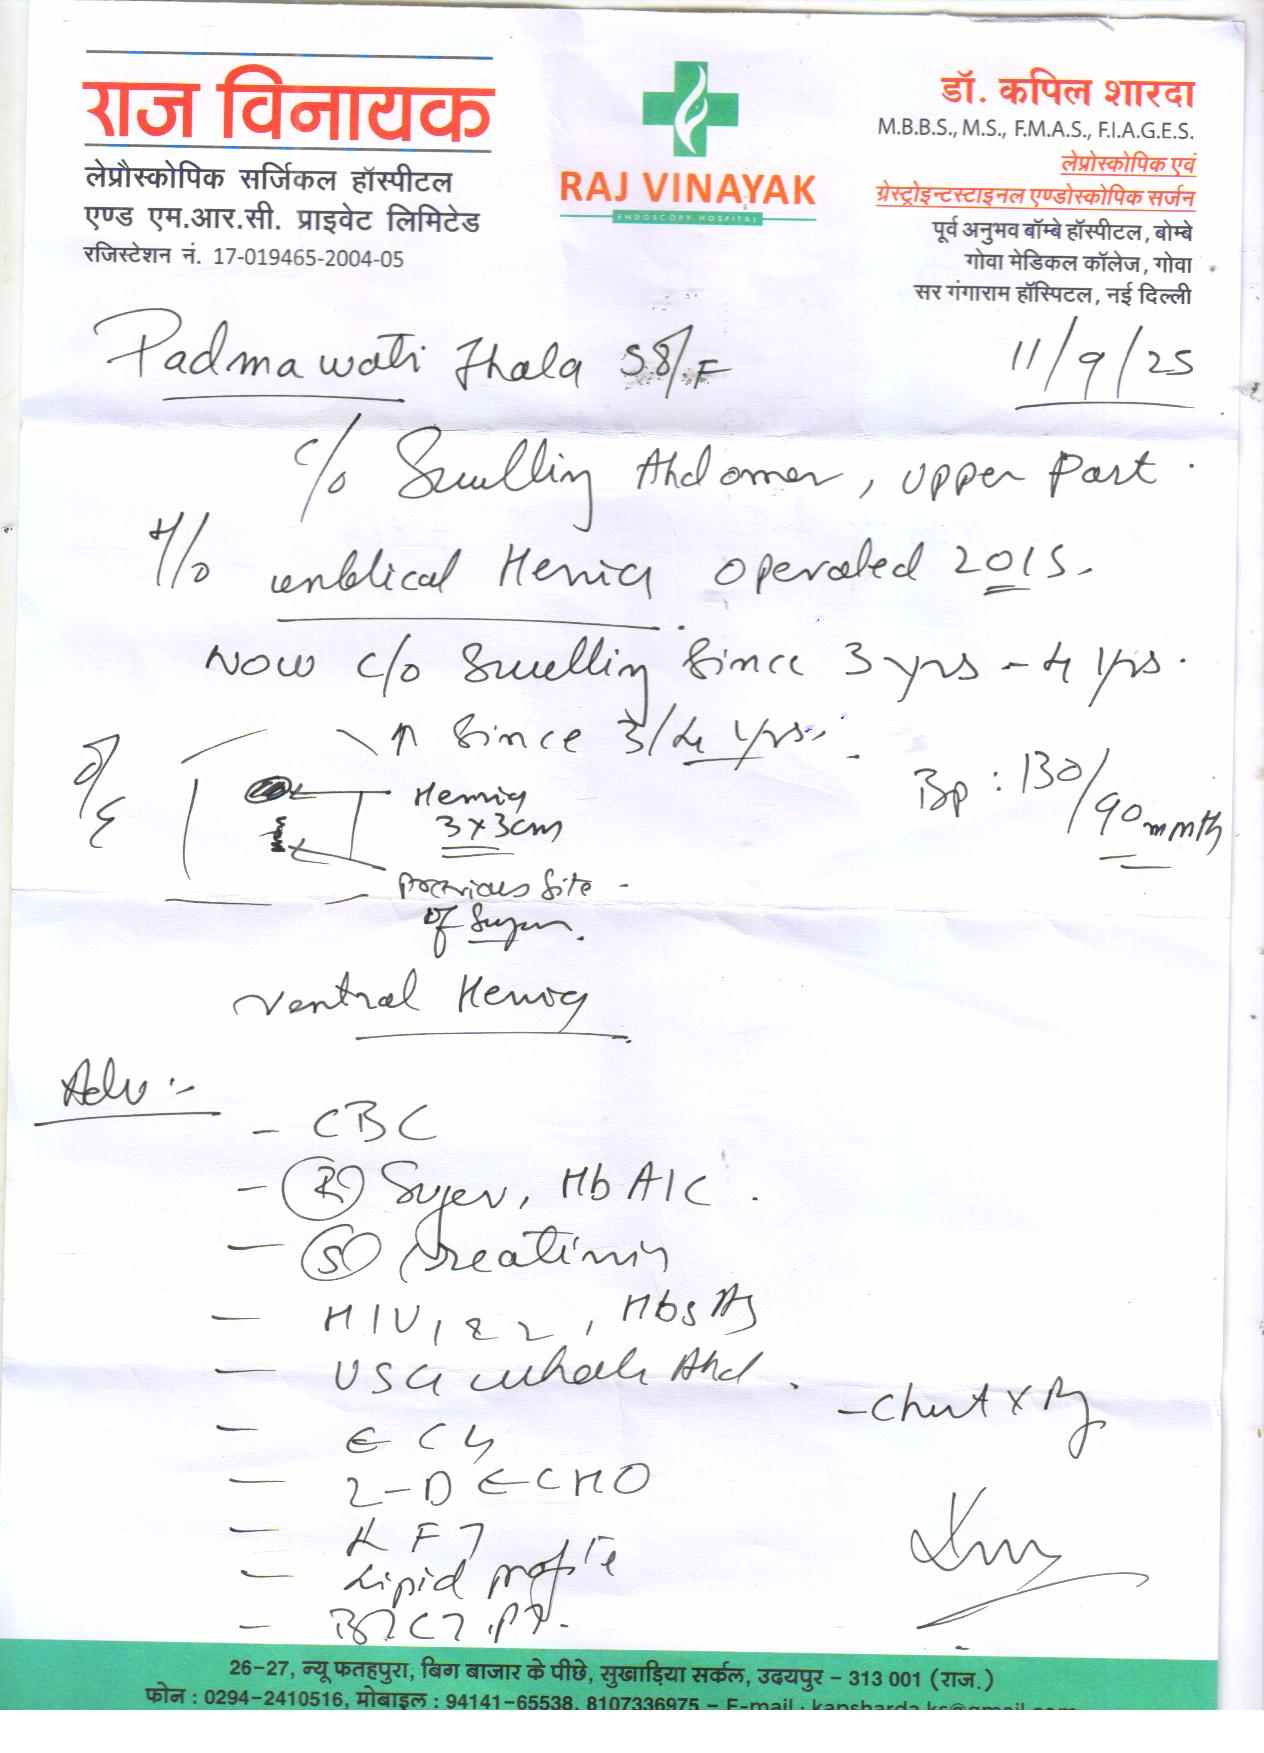 राज विनायक
लेप्रौस्कोपिक सर्जिकल हॉस्पीटल
एण्ड एम.आर.सी. प्राइवेट लिमिटेड
रजिस्टेशन नं. 17-019465-2004-05
RAJ VINAYAK
ENDOSCOPY HOSPITAL
डॉ. कपिल शारदा
M.B.B.S., M.S., F.M.A.S., F.I.A.G.E.S.
लेप्रोस्कोपिक एवं
ग्रेस्ट्रोइन्टस्टाइनल एण्डोस्कोपिक सर्जन
पूर्व अनुभव बॉम्बे हॉस्पीटल, बोम्बे
गोवा मेडिकल कॉलेज, गोवा
सर गंगाराम हॉस्पिटल, नई दिल्ली
Padmawati Jhala 58/F
11/9/25
c/o Swelling Abdomen, upper Part.
H/o umblical Hernia operated 2015.
Now c/o Swelling Since 3 yrs - 4 yrs.
↑ Since 3/4 yrs.
O/E
Hernia
3x3cm
Previous Site
of Surgery.
Bp : 130/90 mmHg
Ventral Hernia
Adv :-
- CBC
- (R) Suger, HbA1C.
- (S) Creatinin
- HIV 1 & 2, HbsAg
- USG whole Abd.
- Chest X Ray
- ECG
- 2-D ECHO
- LFT
- Lipid profile
- BT CT, PT.
26-27, न्यू फतहपुरा, बिग बाजार के पीछे, सुखाड़िया सर्कल, उदयपुर - 313 001 (राज.)
फोन : 0294-2410516, मोबाइल : 94141-65538, 8107336975 - E-mail : kapsharda.ks@gmail.com